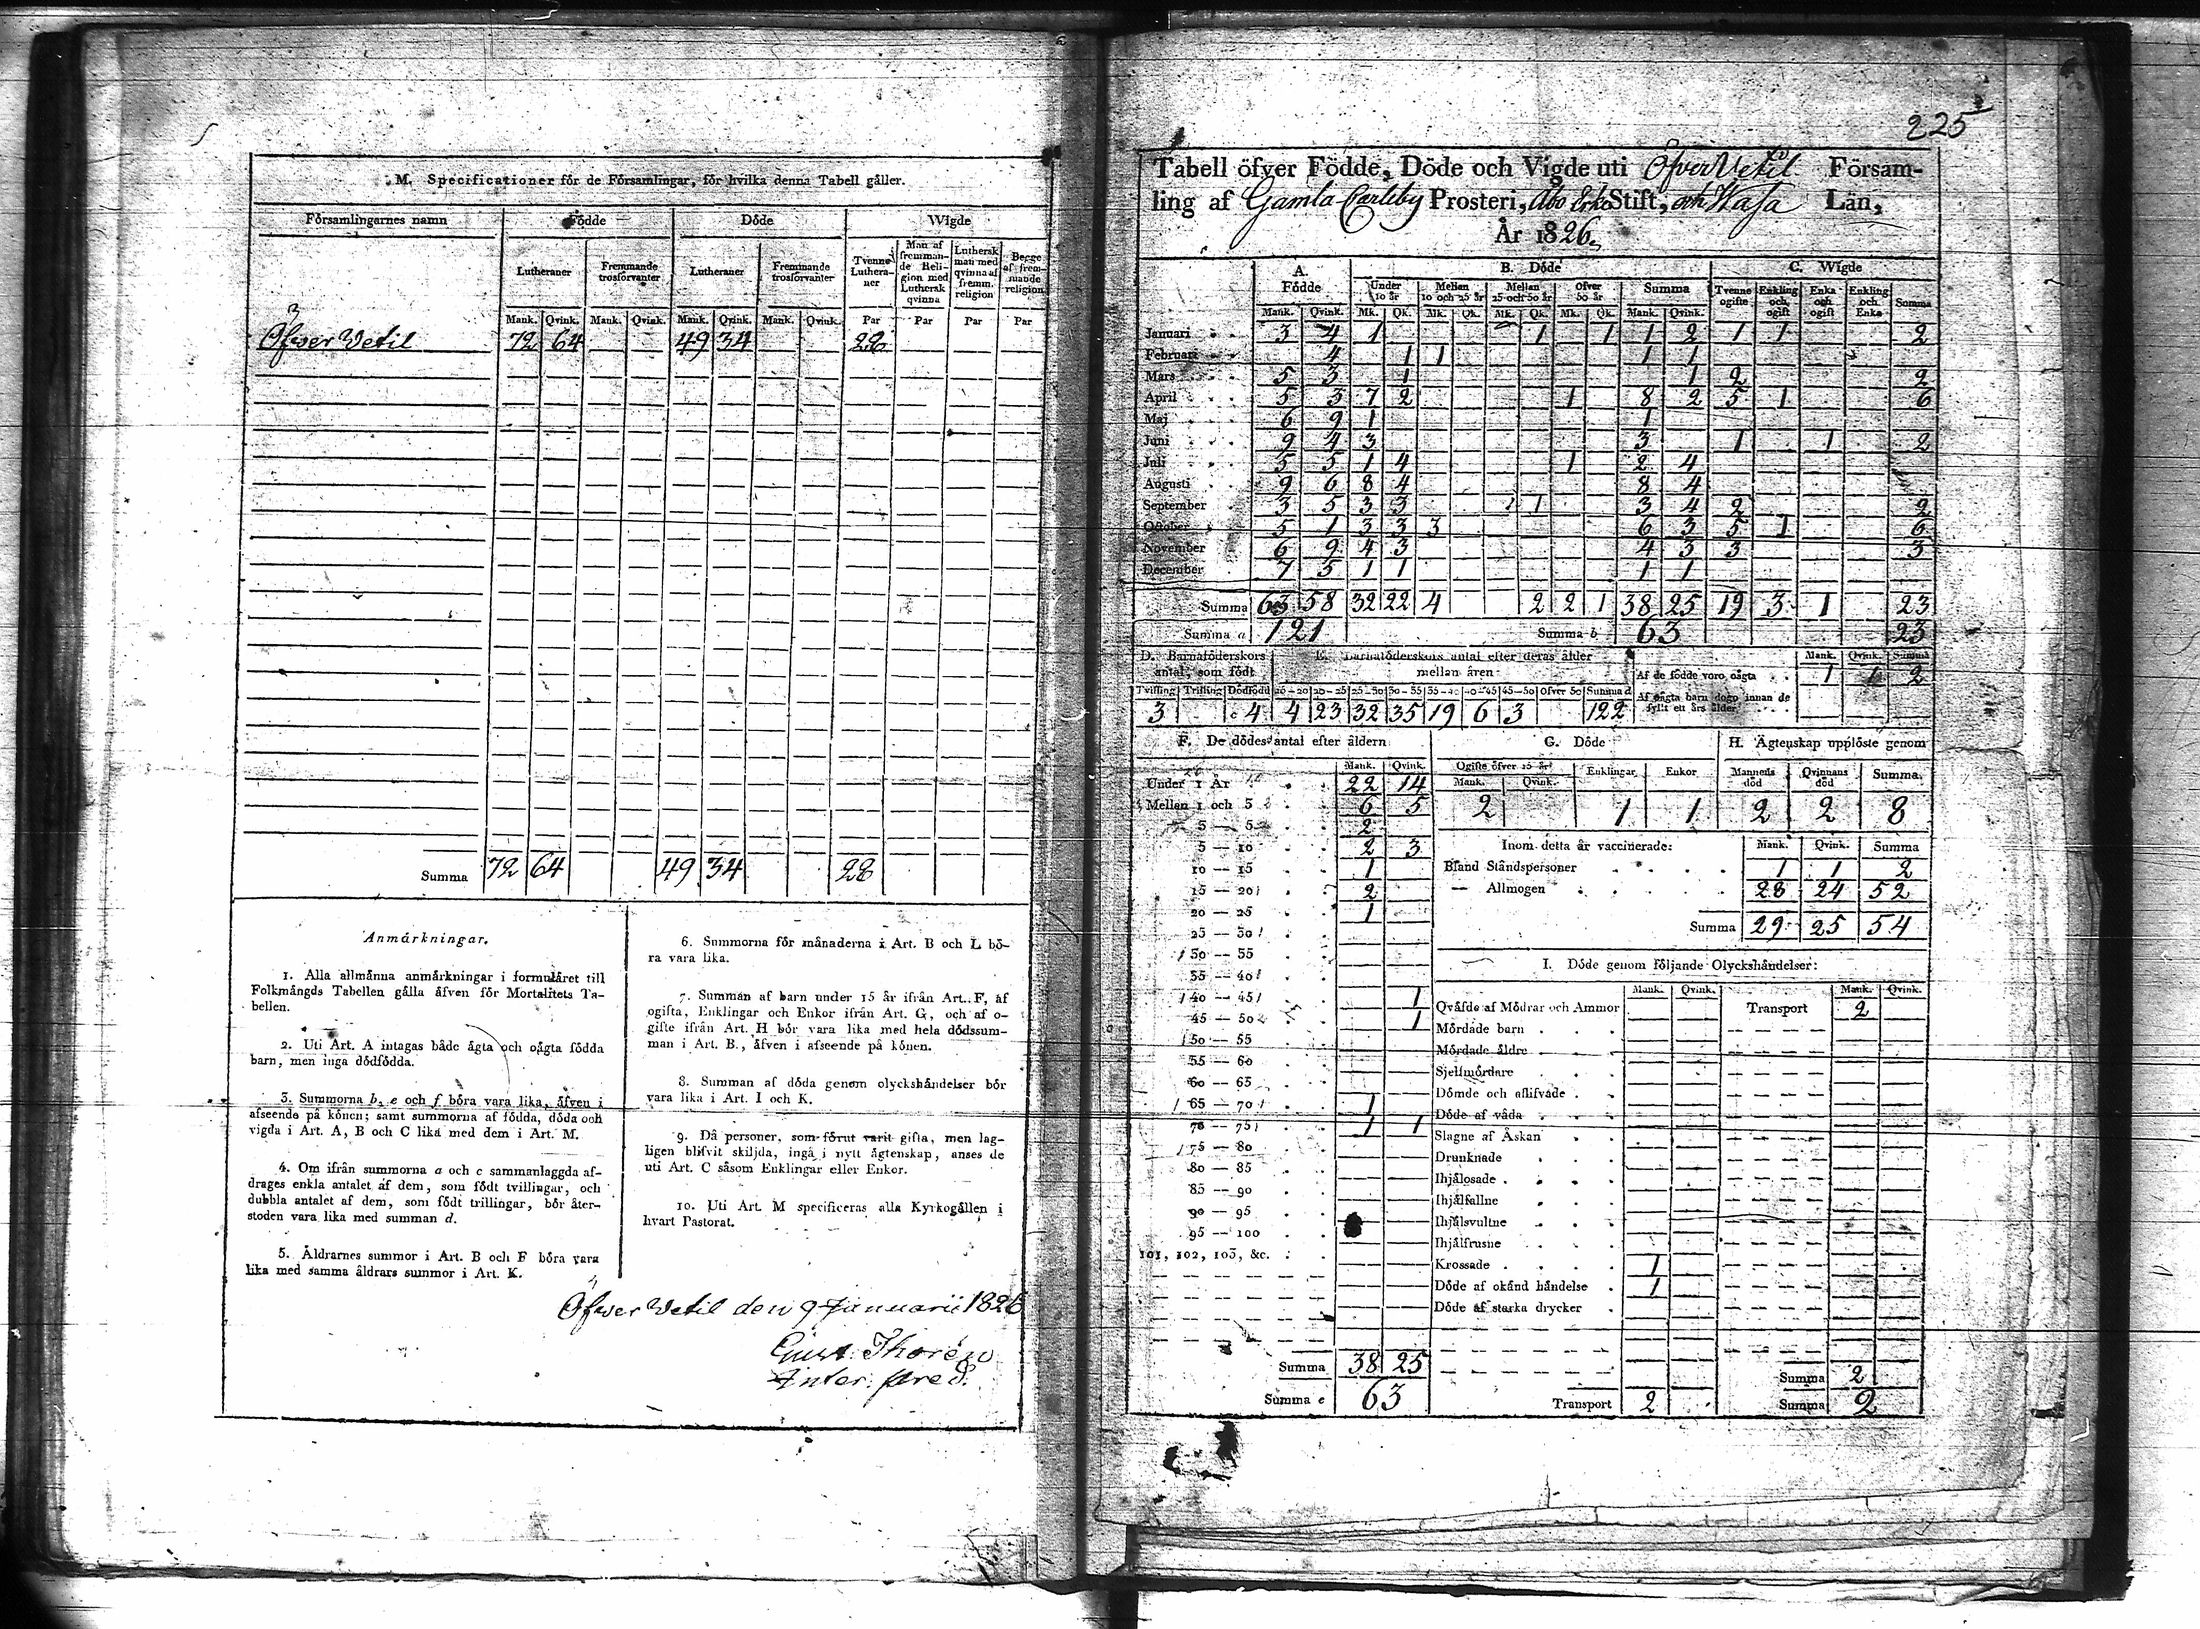 M. Specificationer för de Församlingar, för hvilka denna Tabell gäller.
Församlingarnes namn Födde Döde Wigde
Lutheraner Fremmande trosförvanter Lutheraner Fremmande trosförvanter Tvenne Lutheraner Man af fremmande Religion med Luthersk qvinna Luthersk man med qvinna af fremm. religion Begge af fremmande religion
Mank. Qvink. Mank. Qvink. Mank. Qvink. Mank. Qvink. Par Par Par Par
Öfver Vetil 72 64 49 34 28
Summa 72 64 49 34 28
Anmärkningar.
1. Alla allmänna anmärkningar i formuläret till
Folkmängds Tabellen gälla äfven för Mortalitets Ta-
bellen.
2. Uti Art. A intagas både ägta och oägta födda
barn, men inga dödfödda.
3. Summorna b, e och f böra vara lika, äfven i
afseende på könen; samt summorna af födda, döda och
vigda i Art. A, B och C lika med dem i Art. M.
4. Om ifrån summorna a och c sammanlaggda af-
drages enkla antalet af dem, som födt tvillingar, och
dubbla antalet af dem, som födt trillingar, bör åter-
stoden vara lika med summan d.
5. Åldrarnes summor i Art. B och F böra vara
lika med samma åldrars summor i Art. K.
6. Summorna för månaderna i Art. B och L bö-
ra vara lika.
7. Summan af barn under 15 år ifrån Art. F, af
ogifta, Enklingar och Enkor ifrån Art. G, och af o-
gifte ifrån Art. H bör vara lika med hela dödssum-
man i Art. B., äfven i afseende på könen.
8. Summan af döda genom olyckshändelser bör
vara lika i Art. I och K.
9. Då personer, som förut varit gifta, men lag-
ligen blifvit skiljda, ingå i nytt ägtenskap, anses de
uti Art. C såsom Enklingar eller Enkor.
10. Uti Art. M specificeras alla Kyrkogällen i
hvart Pastorat.
Öfver Vetil den 9 Januarii 1826
Gust. Thorén
Inter. pred.
225
Tabell öfver Födde, Döde och Vigde uti Öfver Vetil Försam-
ling af Gamla Carleby Prosteri, Åbo Stift, och Wasa Län,
År 1826.
A. Födde B. Döde C. Wigde
Under 10 år Mellan 10 och 25 år Mellan 25 och 50 år Öfver 50 år Summa Tvenne ogifte Enkling och ogift Enka och ogift Enkling och Enka Summa
Mank. Qvink. Mk. Qk. Mk. Qk. Mk. Qk. Mk. Qk. Mank. Qvink.
Januari 3 4 1 1 1 1 2 1 1 2
Februari 4 1 1 1 1
Mars 5 3 1 1 2 2
April 5 3 7 2 1 8 2 5 1 6
Maj 6 9 1 1
Juni 9 4 3 3 1 1 2
Juli 5 5 1 4 1 2 4
Augusti 9 6 8 4 8 4
September 3 5 3 3 1 3 4 2 2
October 5 1 3 3 3 6 3 5 1 6
November 6 9 4 3 4 3 3 3
December 7 5 1 1 1 1
Summa 63 58 32 22 4 2 2 1 38 25 19 3 1 23
Summa a 121 Summa b 63 23
D. Barnaföderskors antal, som födt
Tvilling Trilling Dödfödd
3 c 4
E. Barnaföderskors antal efter deras ålder
mellan åren:
16–20 20–25 25–30 30–35 35–40 40–45 45–50 Öfver 50 Summa d
4 23 32 35 19 6 3 122
Mank. Qvink. Summa
Af de födde voro oägta 1 1 2
Af oägta barn dogo innan de
fyllt ett års ålder
F. De dödes antal efter åldern
Mank. Qvink.
Under 1 År 22 14
Mellan 1 och 3 6 5
3 — 5 2
5 — 10 2 3
10 — 15 1
15 — 20 2
20 — 25 1
25 — 30
30 — 35
35 — 40
40 — 45 1
45 — 50 1
50 — 55
55 — 60
60 — 65
65 — 70 1
70 — 75 1 1
75 — 80
80 — 85
85 — 90
90 — 95
95 — 100
101, 102, 103, &c.
Summa 38 25
Summa e 63
G. Döde
Ogifte öfver 15 år Enklingar Enkor
Mank. Qvink.
2 1 1
H. Ägtenskap upplöste genom
Mannens död Qvinnans död Summa
2 2 8
Inom detta år vaccinerade: Mank. Qvink. Summa
Bland Ståndspersoner 1 1 2
— Allmogen 28 24 52
Summa 29 25 54
I. Döde genom följande Olyckshändelser:
Mank. Qvink. Mank. Qvink.
Qväfde af Mödrar och Ammor Transport 2
Mördade barn
Mördade äldre
Sjelfmördare
Dömde och aflifvade
Döde af våda
Slagne af Åskan
Drunknade
Ihjälosade
Ihjälfallne
Ihjälsvultne
Ihjälfrusne
Krossade 1
Döde af okänd händelse 1
Döde af starka drycker
Summa 2
Transport 2 Summa 2